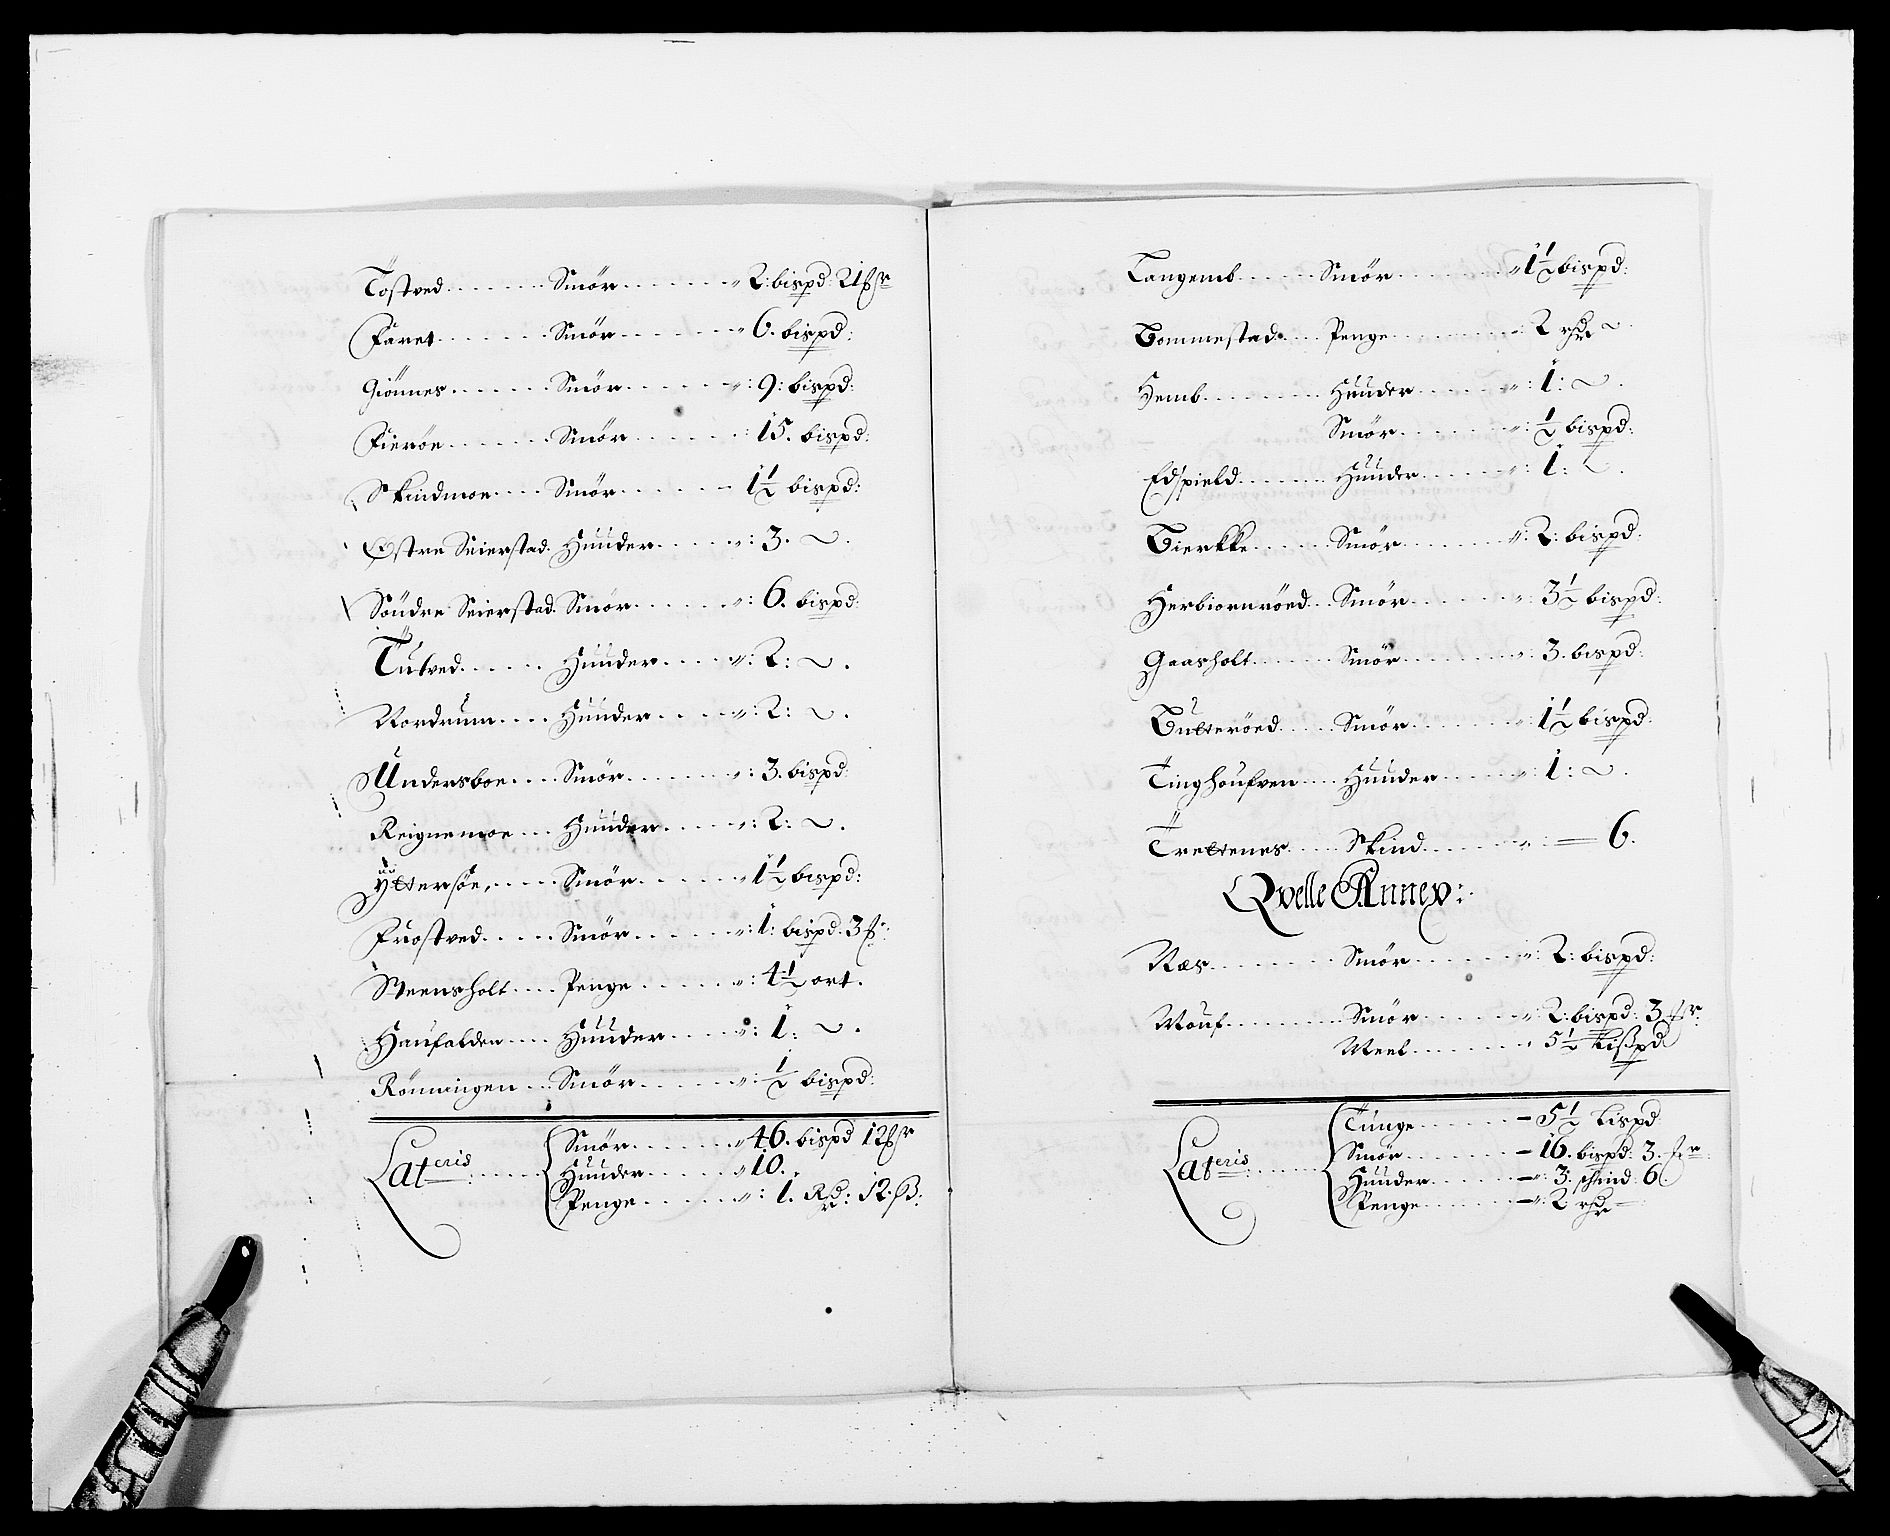 Töstved ........ Smör ........ 2: bispd: 21
Faret ........ Smör ........ 6. bispd:
Giönnes ........ Smör ........ 9: bispd:
Fieröe ........ Smör ........ 15. bispd:
Skindmoe .... Smör ........ 1½ bispd:
Østre Seierstad. Huuder ........ 3.
Söndre Seierstad. Smör ........ 6. bispd:
Tutved ...... Huuder ........ 2:
Nordrum .... Huuder ........ 2:
Undersboe .... Smör ........ 3. bispd:
Reignemoe .... Huuder ........ 2:
Yttersöe, ...... Smör ........ 1½ bispd:
Frostved ...... Smör ........ 1: bispd: 3
Weensholt .... Penge ........ 4½ ort.
Haufalden .... Huuder ........ 1:
Rönningen ... Smör ........ ½ bispd:
Lateris: ..... Smör ........ 46. bispd 12
Huuder ........ 10.
Penge ........ 1. Rd: 12. ß:
Tangemb ...... Smör ........ 1½ bispd:
Bommestad .... Penge ........ 2 rdr
Hemb ........ Huuder ........ 1:
Smör ........ ½ bispd:
Edspield ........ Huuder ........ 1:
Bierkke ...... Smör ........ 2: bispd:
Herbiornröed .. Smör ........ 3½ bispd:
Gaasholt ...... Smör ........ 3. bispd:
Bulteröed ..... Smör ........ 1½ bispd:
Tinghoufven ... Huuder ........ 1:
Trettenes ..... Skind ........ 6.
Qvelle Annex:
Næs ........ Smör ........ 2: bispd:
Mouf ........ Smör ........ 2: bispd: 3
Meel ........ 5½ bispd
Lateris: ..... Tunge ........ 5½ bispd
Smör ........ 16. bispd: 3.
Huuder ........ 3: schind: 6.
Penge ........ 2 rdr